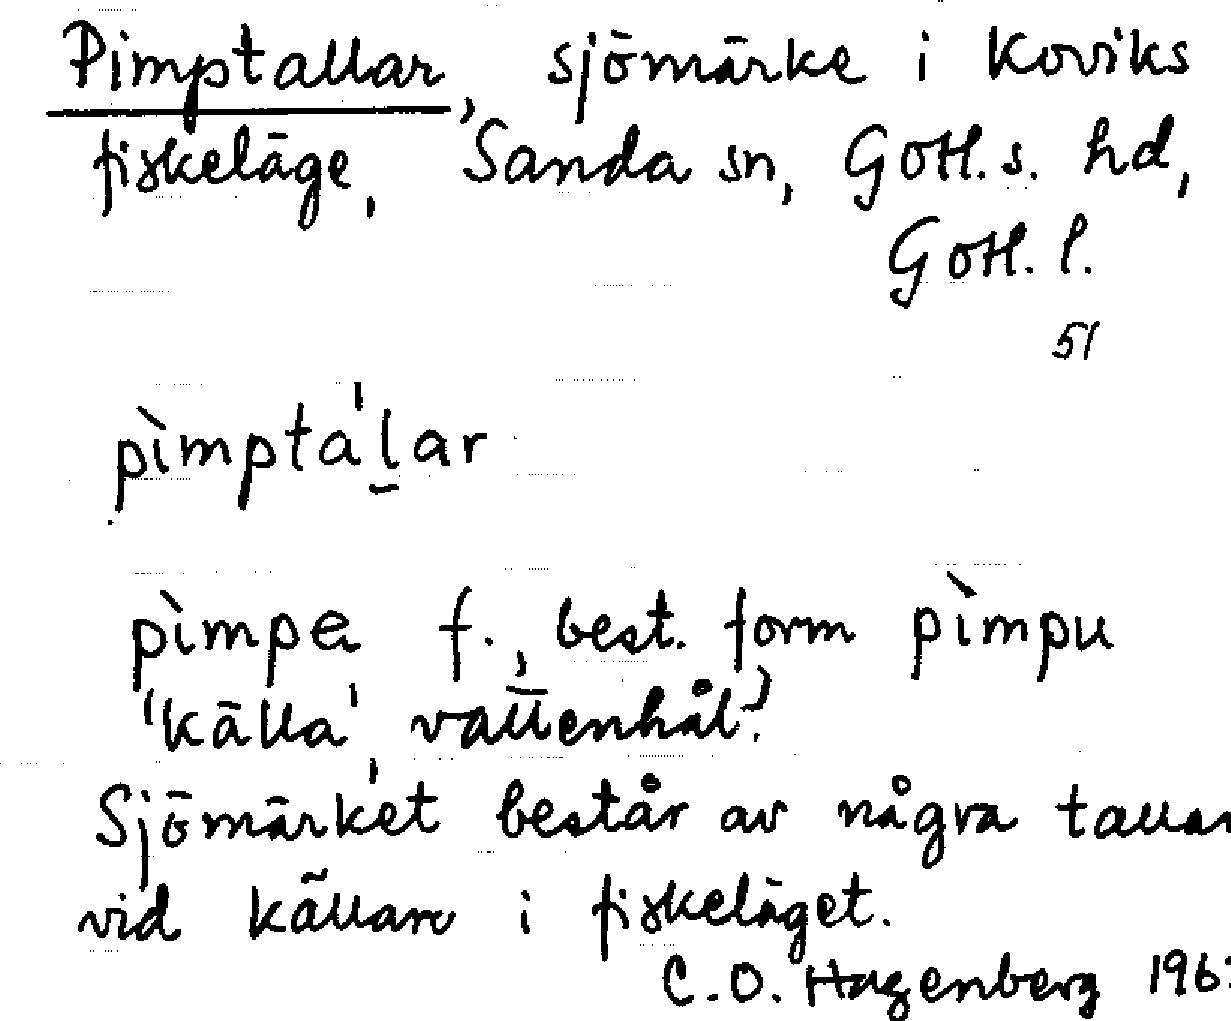 Pimptallar, sjömärke i Koviks
fiskeläge, Sanda sn, Gotl. s. hd,
Gotl. l.
51
pìmpta'l̠ar
pìmpe f., best. form pìmpu
'källa', vattenhål?
Sjömärket består av några tallar
vid källan i fiskeläget.
C.O. Hagenberg